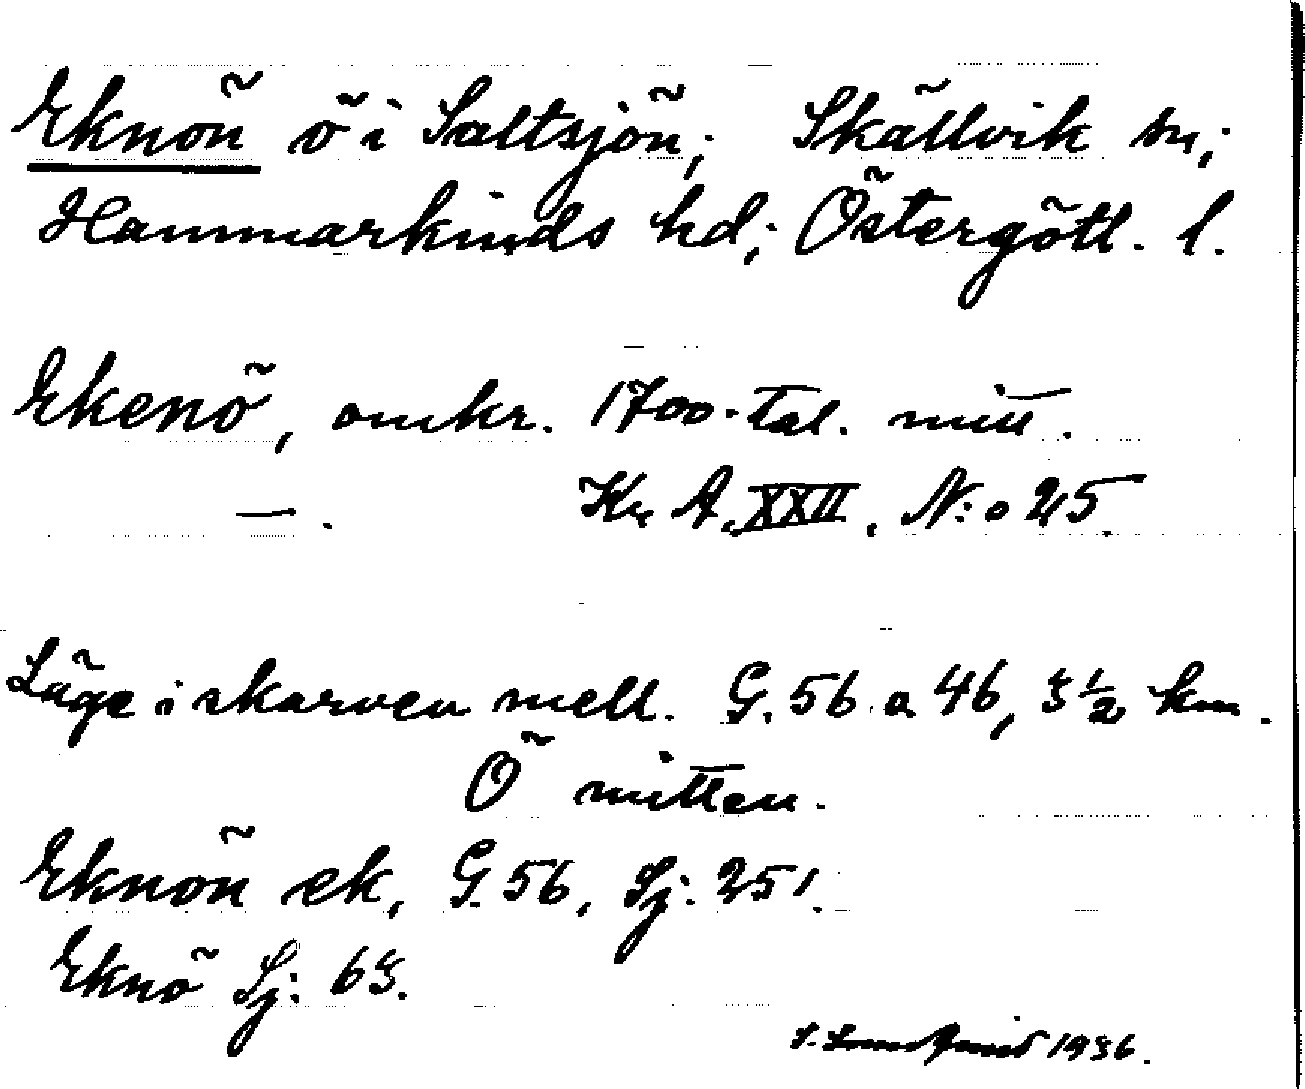 Eknön ö i Saltsjön; Skällvik sn;
Hammarkinds hd; Östergötl. l.
Ekenö, omkr. 1700-tal. mitt.
—. Kr A. XXII, N:o 25.
Läge i skarven mell. G. 56 a 46, 3 1/2 km.
Ö mitten.
Eknön ek, G. 56, Sj: 251.
Eknö Sj: 63.
S. Lundqvist 1936.